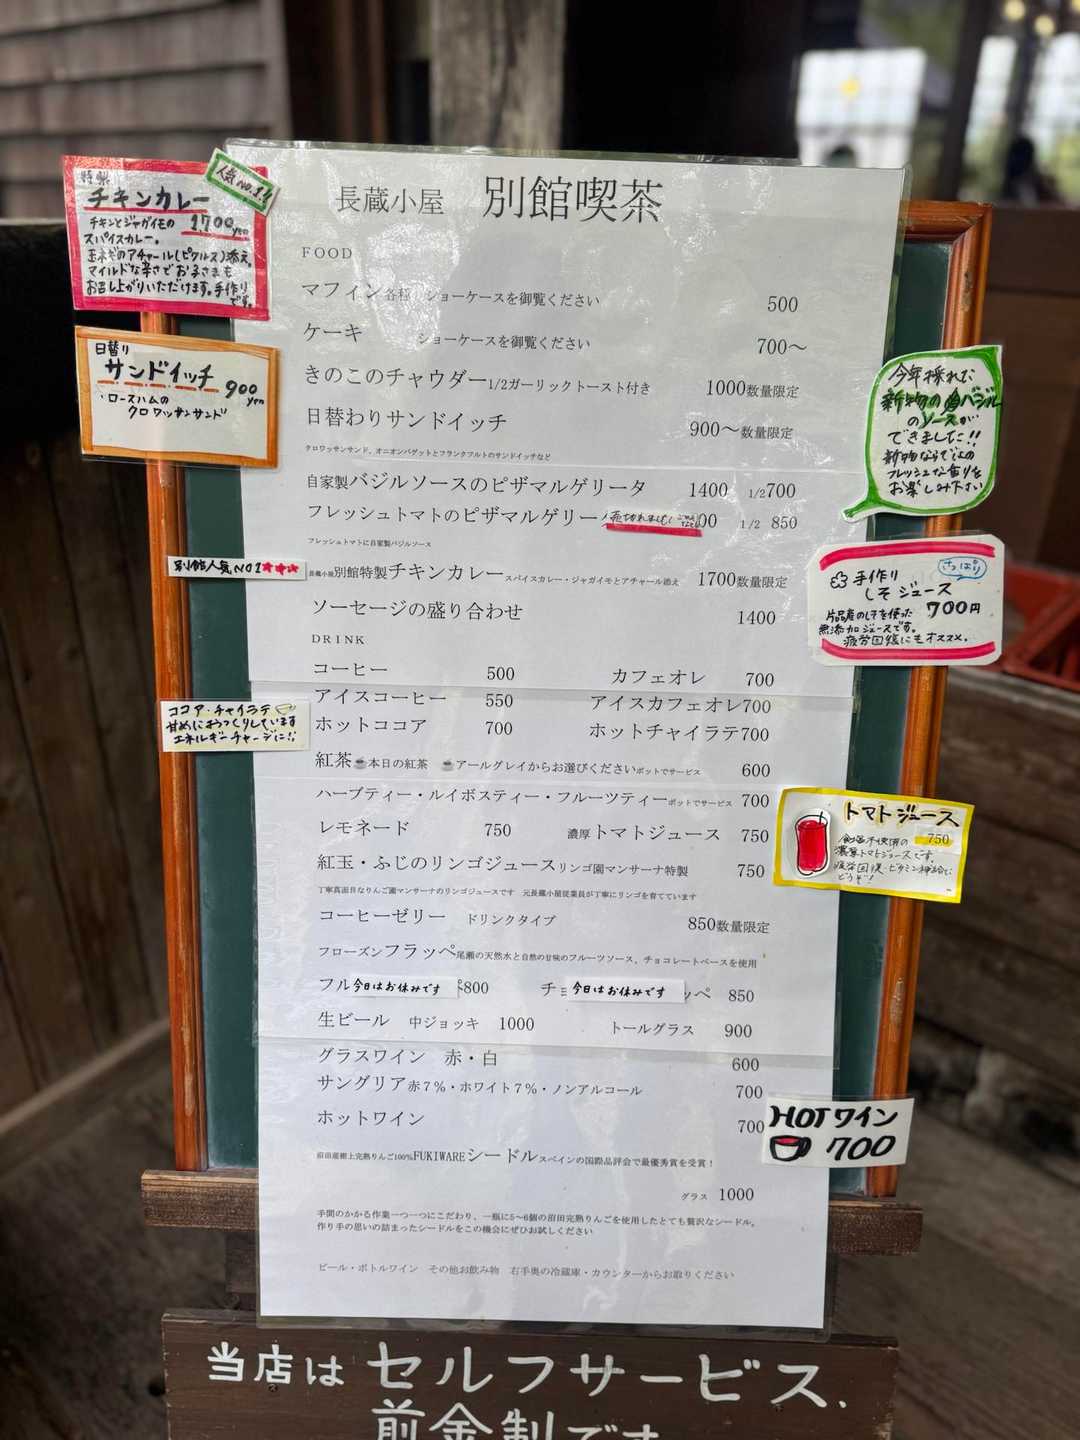 長蔵小屋 別館喫茶
FOOD
マフィン各種 ショーケースを御覧ください 500
ケーキ ショーケースを御覧ください 700〜
きのこのチャウダー1/2ガーリックトースト付き 1000数量限定
日替わりサンドイッチ 900〜数量限定
クロワッサンサンド、オニオンバゲットとフランクフルトのサンドイッチなど
自家製バジルソースのピザマルゲリータ 1400 1/2700
フレッシュトマトのピザマルゲリー 売切れました 00 1/2 850
フレッシュトマトに自家製バジルソース
長蔵小屋別館特製チキンカレースパイスカレー・ジャガイモとアチャール添え 1700数量限定
ソーセージの盛り合わせ 1400
DRINK
コーヒー 500 カフェオレ 700
アイスコーヒー 550 アイスカフェオレ700
ホットココア 700 ホットチャイラテ700
紅茶☕本日の紅茶 ☕アールグレイからお選びくださいポットでサービス 600
ハーブティー・ルイボスティー・フルーツティーポットでサービス 700
レモネード 750 濃厚トマトジュース 750
紅玉・ふじのリンゴジュースリンゴ園マンサーナ特製 750
丁寧真面目なりんご園マンサーナのリンゴジュースです 元長蔵小屋従業員が丁寧にリンゴを育てています
コーヒーゼリー ドリンクタイプ 850数量限定
フローズンフラッペ尾瀬の天然水と自然の甘味のフルーツソース、チョコレートベースを使用
フル 今日はお休みです 800 チョ 今日はお休みです ッペ 850
生ビール 中ジョッキ 1000 トールグラス 900
グラスワイン 赤・白 600
サングリア赤7%・ホワイト7%・ノンアルコール 700
ホットワイン 700
沼田産樹上完熟りんご100%FUKIWAREシードルスペインの国際品評会で最優秀賞を受賞！
グラス 1000
手間のかかる作業一つ一つにこだわり、一瓶に5〜6個の沼田完熟りんごを使用したとても贅沢なシードル。
作り手の思いの詰まったシードルをこの機会にぜひお試しください
ビール・ボトルワイン その他お飲み物 右手奥の冷蔵庫・カウンターからお取りください
特製
人気NO.1!
チキンカレー
チキンとジャガイモの 1700yen
スパイスカレー。
玉ネギのアチャール(ピクルス)添え。
マイルドな辛さでお子さまも
お召し上がりいただけます。手作り
です。
日替り
サンドイッチ 900yen
・ロースハムの
クロワッサンサンド
別館人気NO1★★★
ココア・チャイラテ
甘めにおつくりしています
エネルギーチャージに!!
今年採れた
新物のバジル
のソースが
できました!!
新物ならではの
フレッシュな香りを
お楽しみ下さい
さっぱり
手作り
しそジュース
片品産のしそを使った 700円
無添加ジュースです。
疲労回復にもオススメ。
トマトジュース
750
食塩不使用の
濃厚トマトジュースです。
疲労回復・ビタミン補給に
どうぞ!
HOTワイン
700
当店は セルフサービス、
前金制です